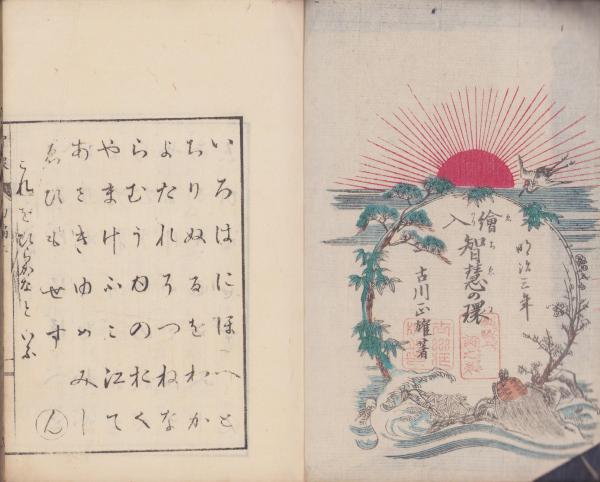 明治三年
繪入
智慧の環
ゑいり
ちゑ
わ
古川正雄著
いろはにほへと
ちりぬるをわか
よたれそつねな
らむうゐのおく
やまけふこ江て
あさきゆめみし
ゑひもせす
ん
これをひらかなといふ